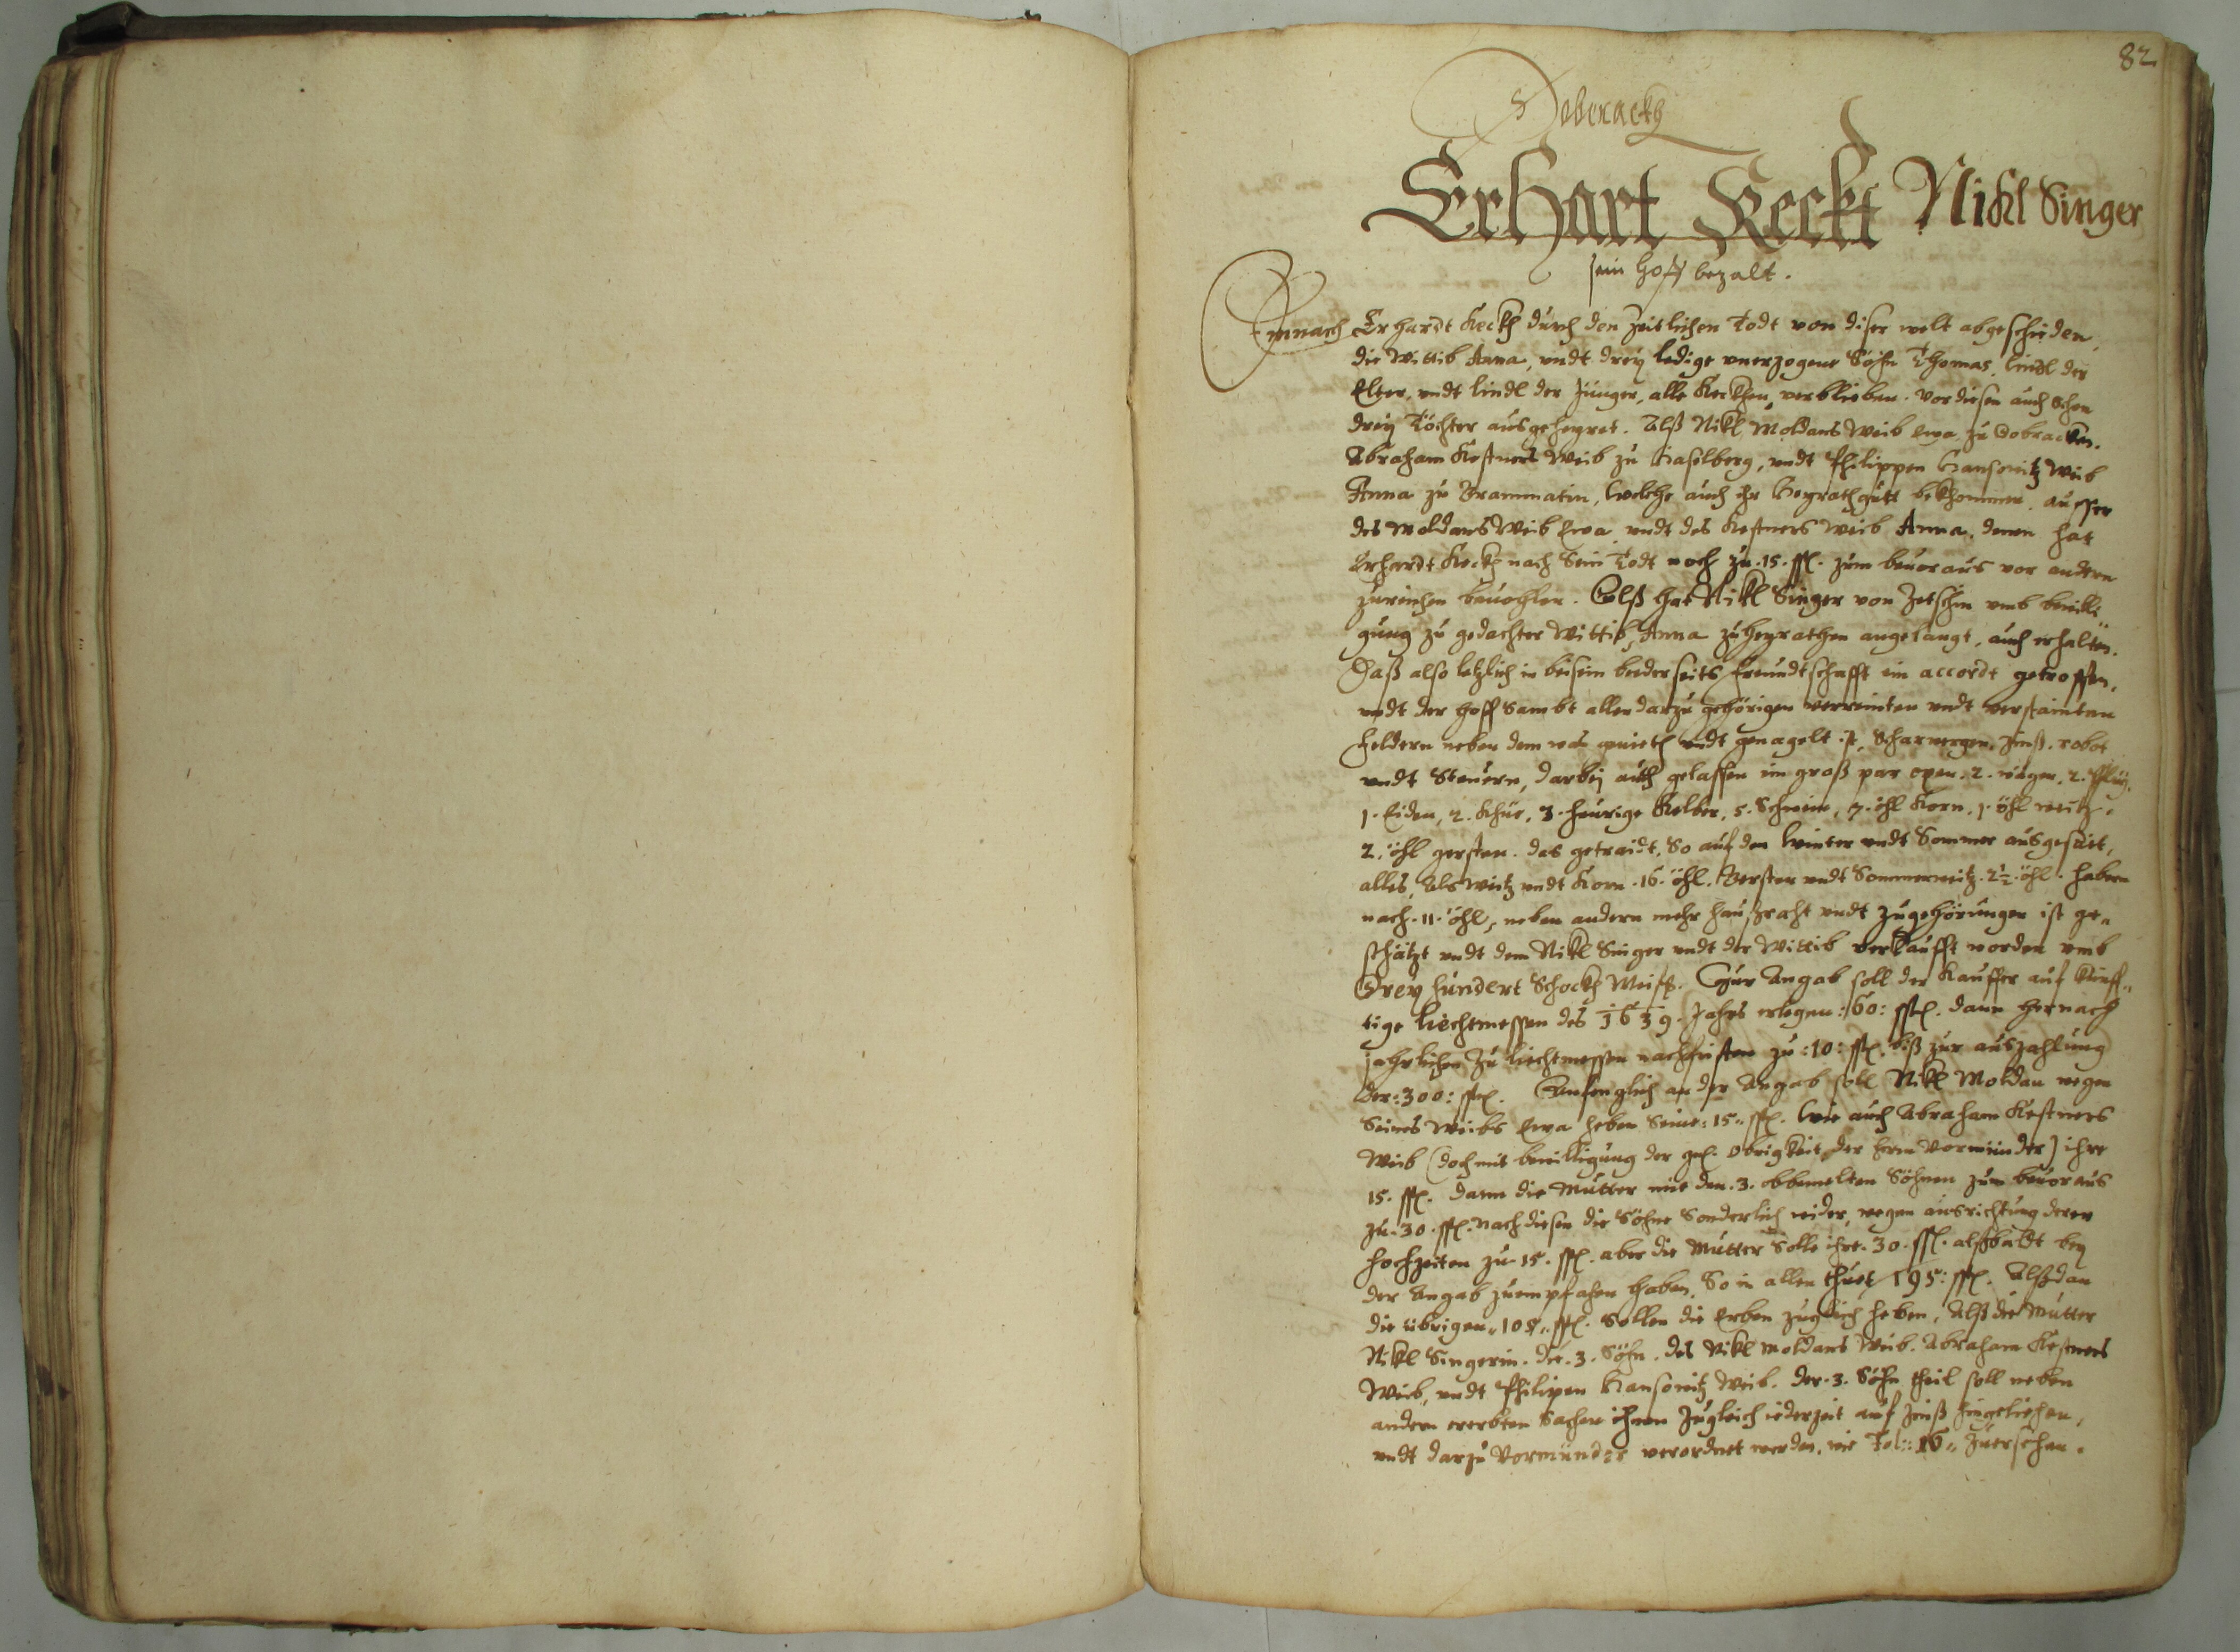 82
Doberackh
Erhart Keckt Nickl Singer
sein hoff bezalt.
Demnach Erhardt Keckh durch den zeitlichen Todt von diser welt abgeschieden,
die Wittib Anna, undt drey ledige unerzogene Söhn Thomas, Lindl der
Elter, undt Lindl der Jünger, alle Keckhen, verblieben. Vor diesen auch schon
drey Töchter ausgeheyret. Alß Nikl Moldans Weib Ewa zu Dobracken.
Abraham Kestners Weib zu Haselberg, undt Philippen Hansowitz Weib
Anna zu Trammatin, welche auch ihr Heyrathgutt bekhommen, ausser
des Moldans Weib Ewa, undt des Kestners Weib Anna, denen hat
Erhardt Keckh nach Sein Todt noch zu .15. ßl. zum bevoraus vor andern
zureichen bevohlen. Alß hat Nikl Singer von umb bewilli
gung zu gedachter Wittib Anna zuheyrathen angelangt, auch erhalten.
Daß also letzlich in beisein bederseits freundtschafft ein accordt getroffen,
undt der hoff sambt allen darzu gehörigen verreinten undt verstainten
Feldern neben dem was undt genagelt ist, Scharwergen, Zinß, robot
undt Steuern, darbej auch gelassen ein groß par oxen, 2. wägen, 2. Pflüg,
1. Eiden, 2. Khüe, 3. heurige Kelber, 5. Schwein, 7. öhl Korn, 1. öhl weitz,
2. öhl gersten. das getraidt, So auf den winter undt Sommer ausgesäet,
alles, Als weitz undt Korn .16. öhl. Gersten undt Sommerweitz .2½. öhl. habern
nach .11. öhl, neben andern mehr haußraht undt zugehörungen ist ge„
schätzt undt dem Nikl Singer undt der Wittib verkaufft worden umb
Drey hundert Schockh Meiß. Zur Angab soll der Kauffer auf künff„
tige Liechtmessen des 1639. Jahrs erlegen :60: ßl. dann hernach
jahrlichen zu Liechtmessen nachfristen zu :10: ßl. biß zur auszahlung
der :300: ßl. Anfenglich an der Angab soll Nikl Moldan wegen
Seines Weibs Ewa heben Seine :15„ ßl. wie auch Abraham Kestners
Weib (doch mit bewilligung der obrigkeit, der Vormünder) ihre
15. ßl. dann die Mutter mit den .3. obbemelten Söhnen zum bevoraus
zu .30. ßl. nach diesen die Söhne Sonderlich wider, wegen ausrichtung deren
hochzeiten zu .15. ßl. aber die Mutter Solle ihre .30. ßl. alßbaldt bey
der Angab zuempfahen haben, So in allen thuet 195: ßl. Alßdan
die übrigen „105„ ßl. Sollen die Erben zugleich heben, Alß die Mutter
Nikl Singerin, die .3. Söhn, des Nikl Moldans Weib, Abraham Kestners
Weib, undt Philipen Hansowitz Weib. der .3. Söhn theil soll neben
andern ererbten Sachen ihnen zugleich iederzeit auf Zinß hingeliehen,
undt darzu Vormünder verordnet werden, wie Fol:: 16„ zuersehen.